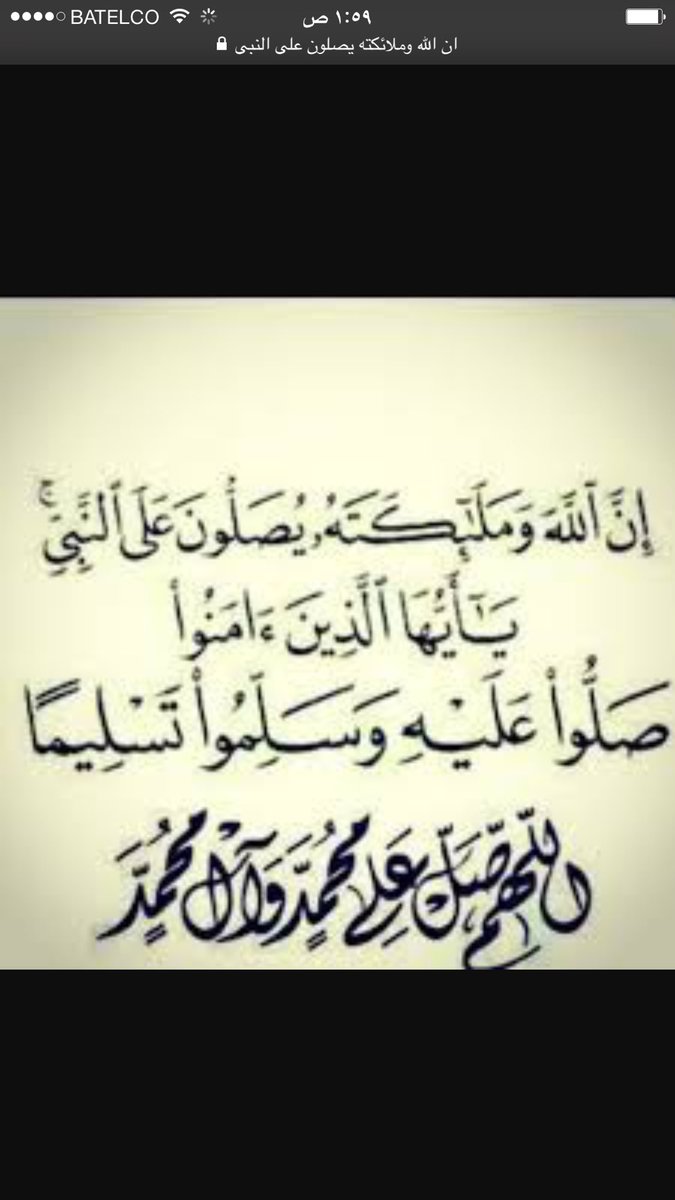 BATELCO ١:٥٩ ص
ان الله وملائكته يصلون على النبى
إِنَّ ٱللَّهَ وَمَلَٰٓئِكَتَهُۥ يُصَلُّونَ عَلَى ٱلنَّبِىِّ ۚ
يَٰٓأَيُّهَا ٱلَّذِينَ ءَامَنُوا۟
صَلُّوا۟ عَلَيْهِ وَسَلِّمُوا۟ تَسْلِيمًا
اللّهم صَلِّ عَلى محُمَّدٍ وَآلِ محُمَّدٍ